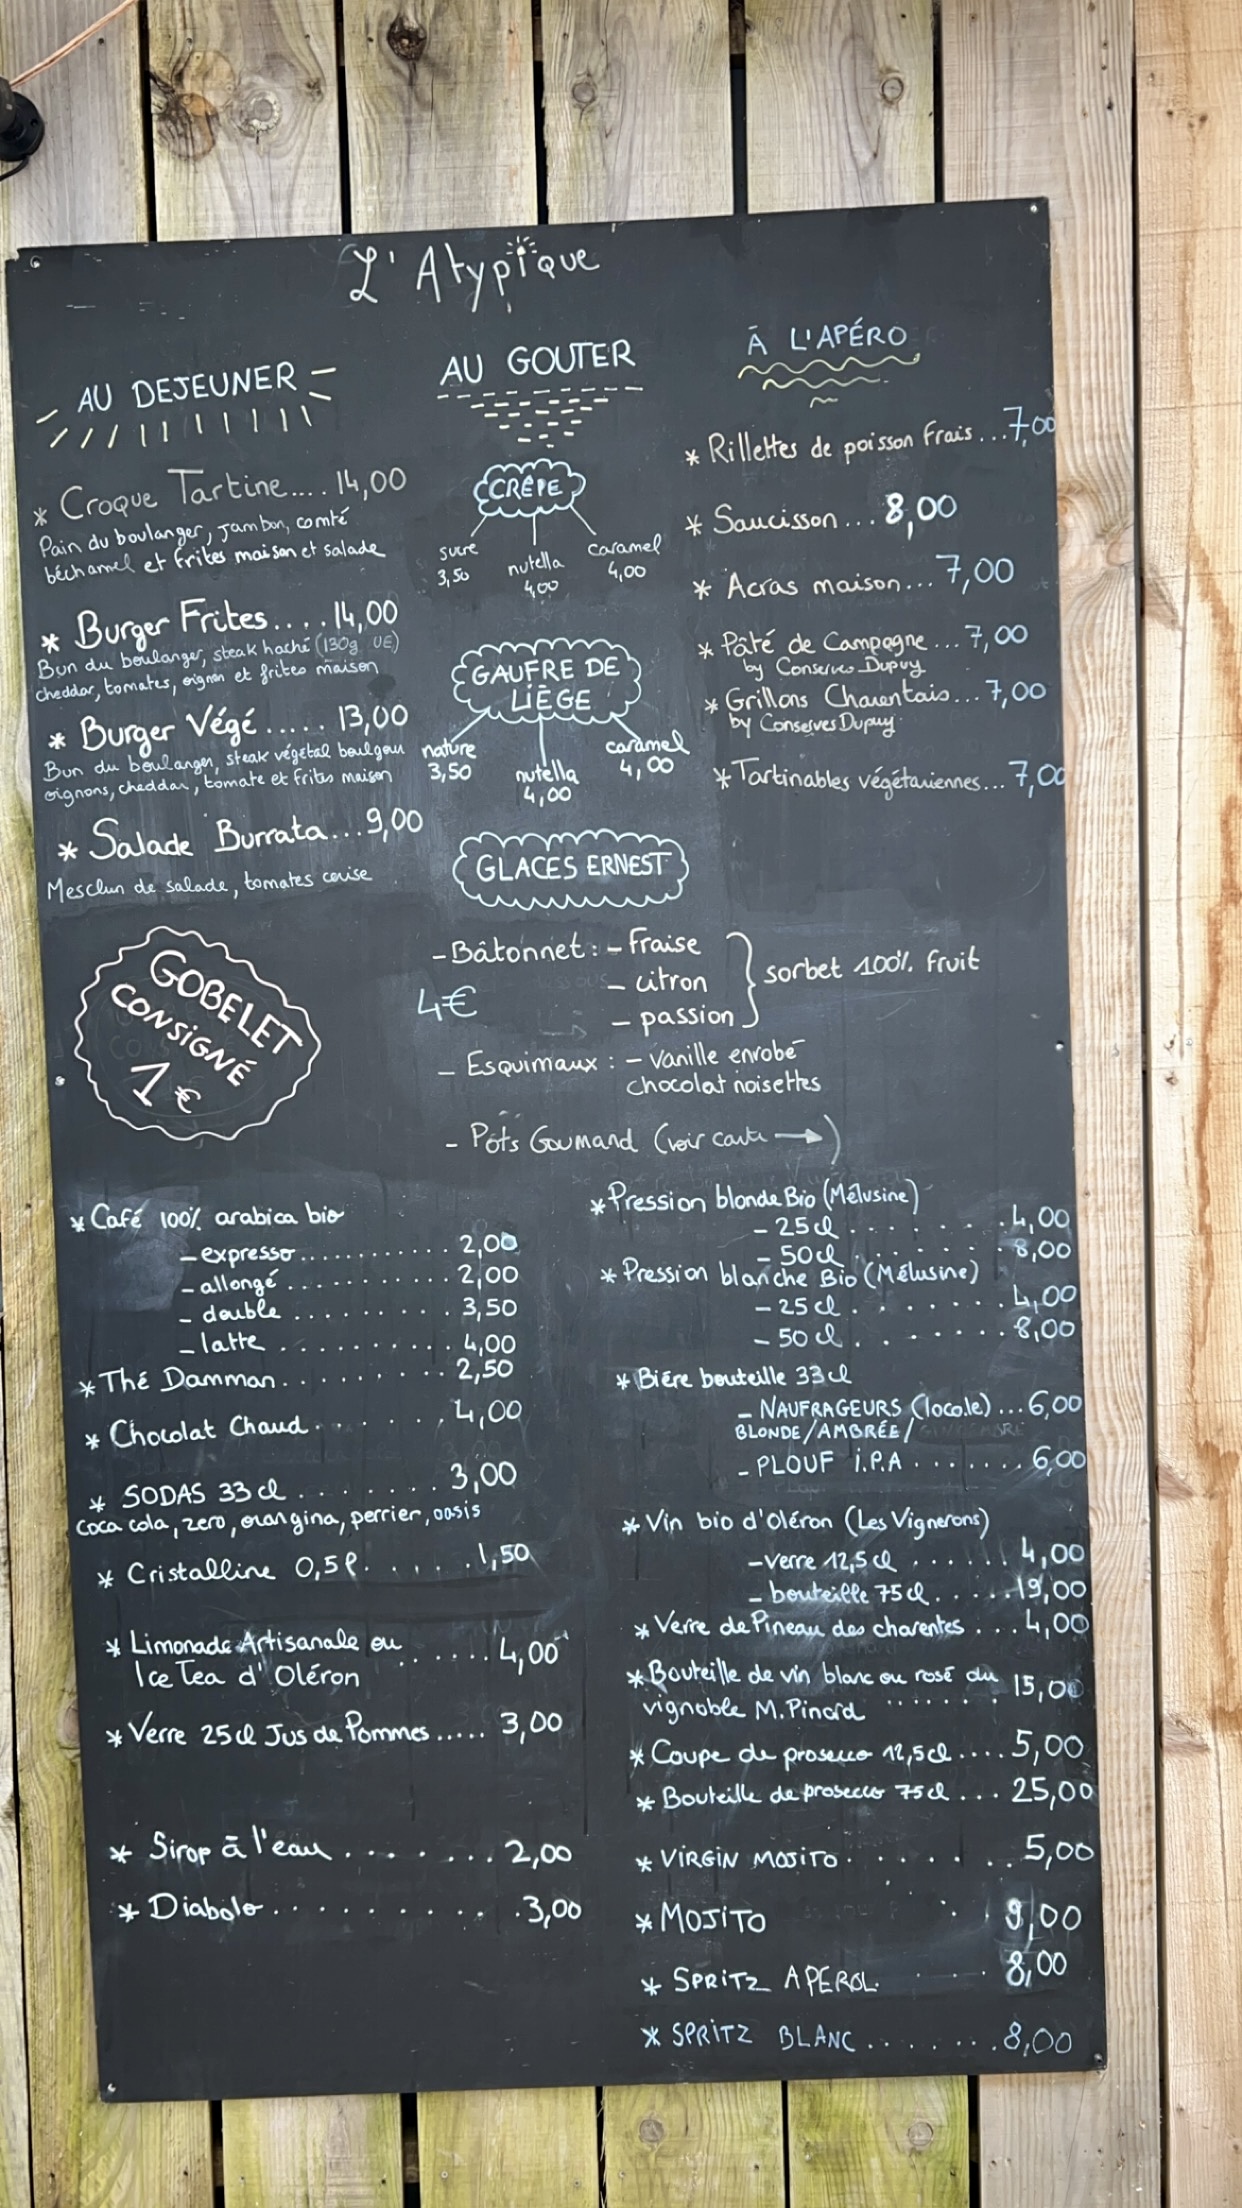 L'Atypique
AU DEJEUNER
* Croque Tartine.... 14,00
Pain du boulanger, jambon, comté
béchamel et frites maison et salade
* Burger Frites.... 14,00
Bun du boulanger, steak haché (130g UE)
cheddar, tomates, oignon et frites maison
* Burger Végé..... 13,00
Bun du boulanger, steak végétal boulgour
oignons, cheddar, tomate et frites maison
* Salade Burrata...9,00
Mesclun de salade, tomates cerise
AU GOUTER
CRÊPE
sucre
3,50
nutella
4,00
caramel
4,00
GAUFRE DE
LIÈGE
nature
3,50
nutella
4,00
caramel
4,00
GLACES ERNEST
- Bâtonnet : - Fraise
- citron
- passion
sorbet 100% fruit
4€
- Esquimaux : - Vanille enrobé
chocolat noisettes
- Pots Gourmand (voir carte →)
À L'APÉRO
* Rillettes de poisson frais...7,00
* Saucisson... 8,00
* Acras maison... 7,00
* Pâté de Campagne...7,00
by Conserves Dupuy
* Grillons Charentais...7,00
by Conserves Dupuy
* Tartinables végétariennes...7,00
GOBELET
CONSIGNÉ
1€
* Café 100% arabica bio
- expresso........... 2,00
- allongé........... 2,00
- double.......... 3,50
- latte.......... 4,00
* Thé Damman......... 2,50
* Chocolat Chaud....... 4,00
* SODAS 33cl........ 3,00
Coca cola, zero, orangina, perrier, oasis
* Cristalline 0,5l...... 1,50
* Limonade Artisanale ou
Ice Tea d'Oléron ...... 4,00
* Verre 25cl Jus de Pommes..... 3,00
* Sirop à l'eau........ 2,00
* Diabolo........... 3,00
* Pression blonde Bio (Mélusine)
- 25cl........ 4,00
- 50cl........ 8,00
* Pression blanche Bio (Mélusine)
- 25cl........ 4,00
- 50cl........ 8,00
* Bière bouteille 33cl
- NAUFRAGEURS (locale)...6,00
BLONDE/AMBRÉE/
- PLOUF I.P.A....... 6,00
* Vin bio d'Oléron (Les Vignerons)
- verre 12,5cl...... 4,00
- bouteille 75cl..... 19,00
* Verre de Pineau des charentes...4,00
* Bouteille de vin blanc ou rosé du
vignoble M.Pinard ....... 15,00
* Coupe de prosecco 12,5cl....5,00
* Bouteille de prosecco 75cl... 25,00
* VIRGIN MOJITO....... 5,00
* MOJITO 9,00
* SPRITZ APEROL..... 8,00
* SPRITZ BLANC....... 8,00